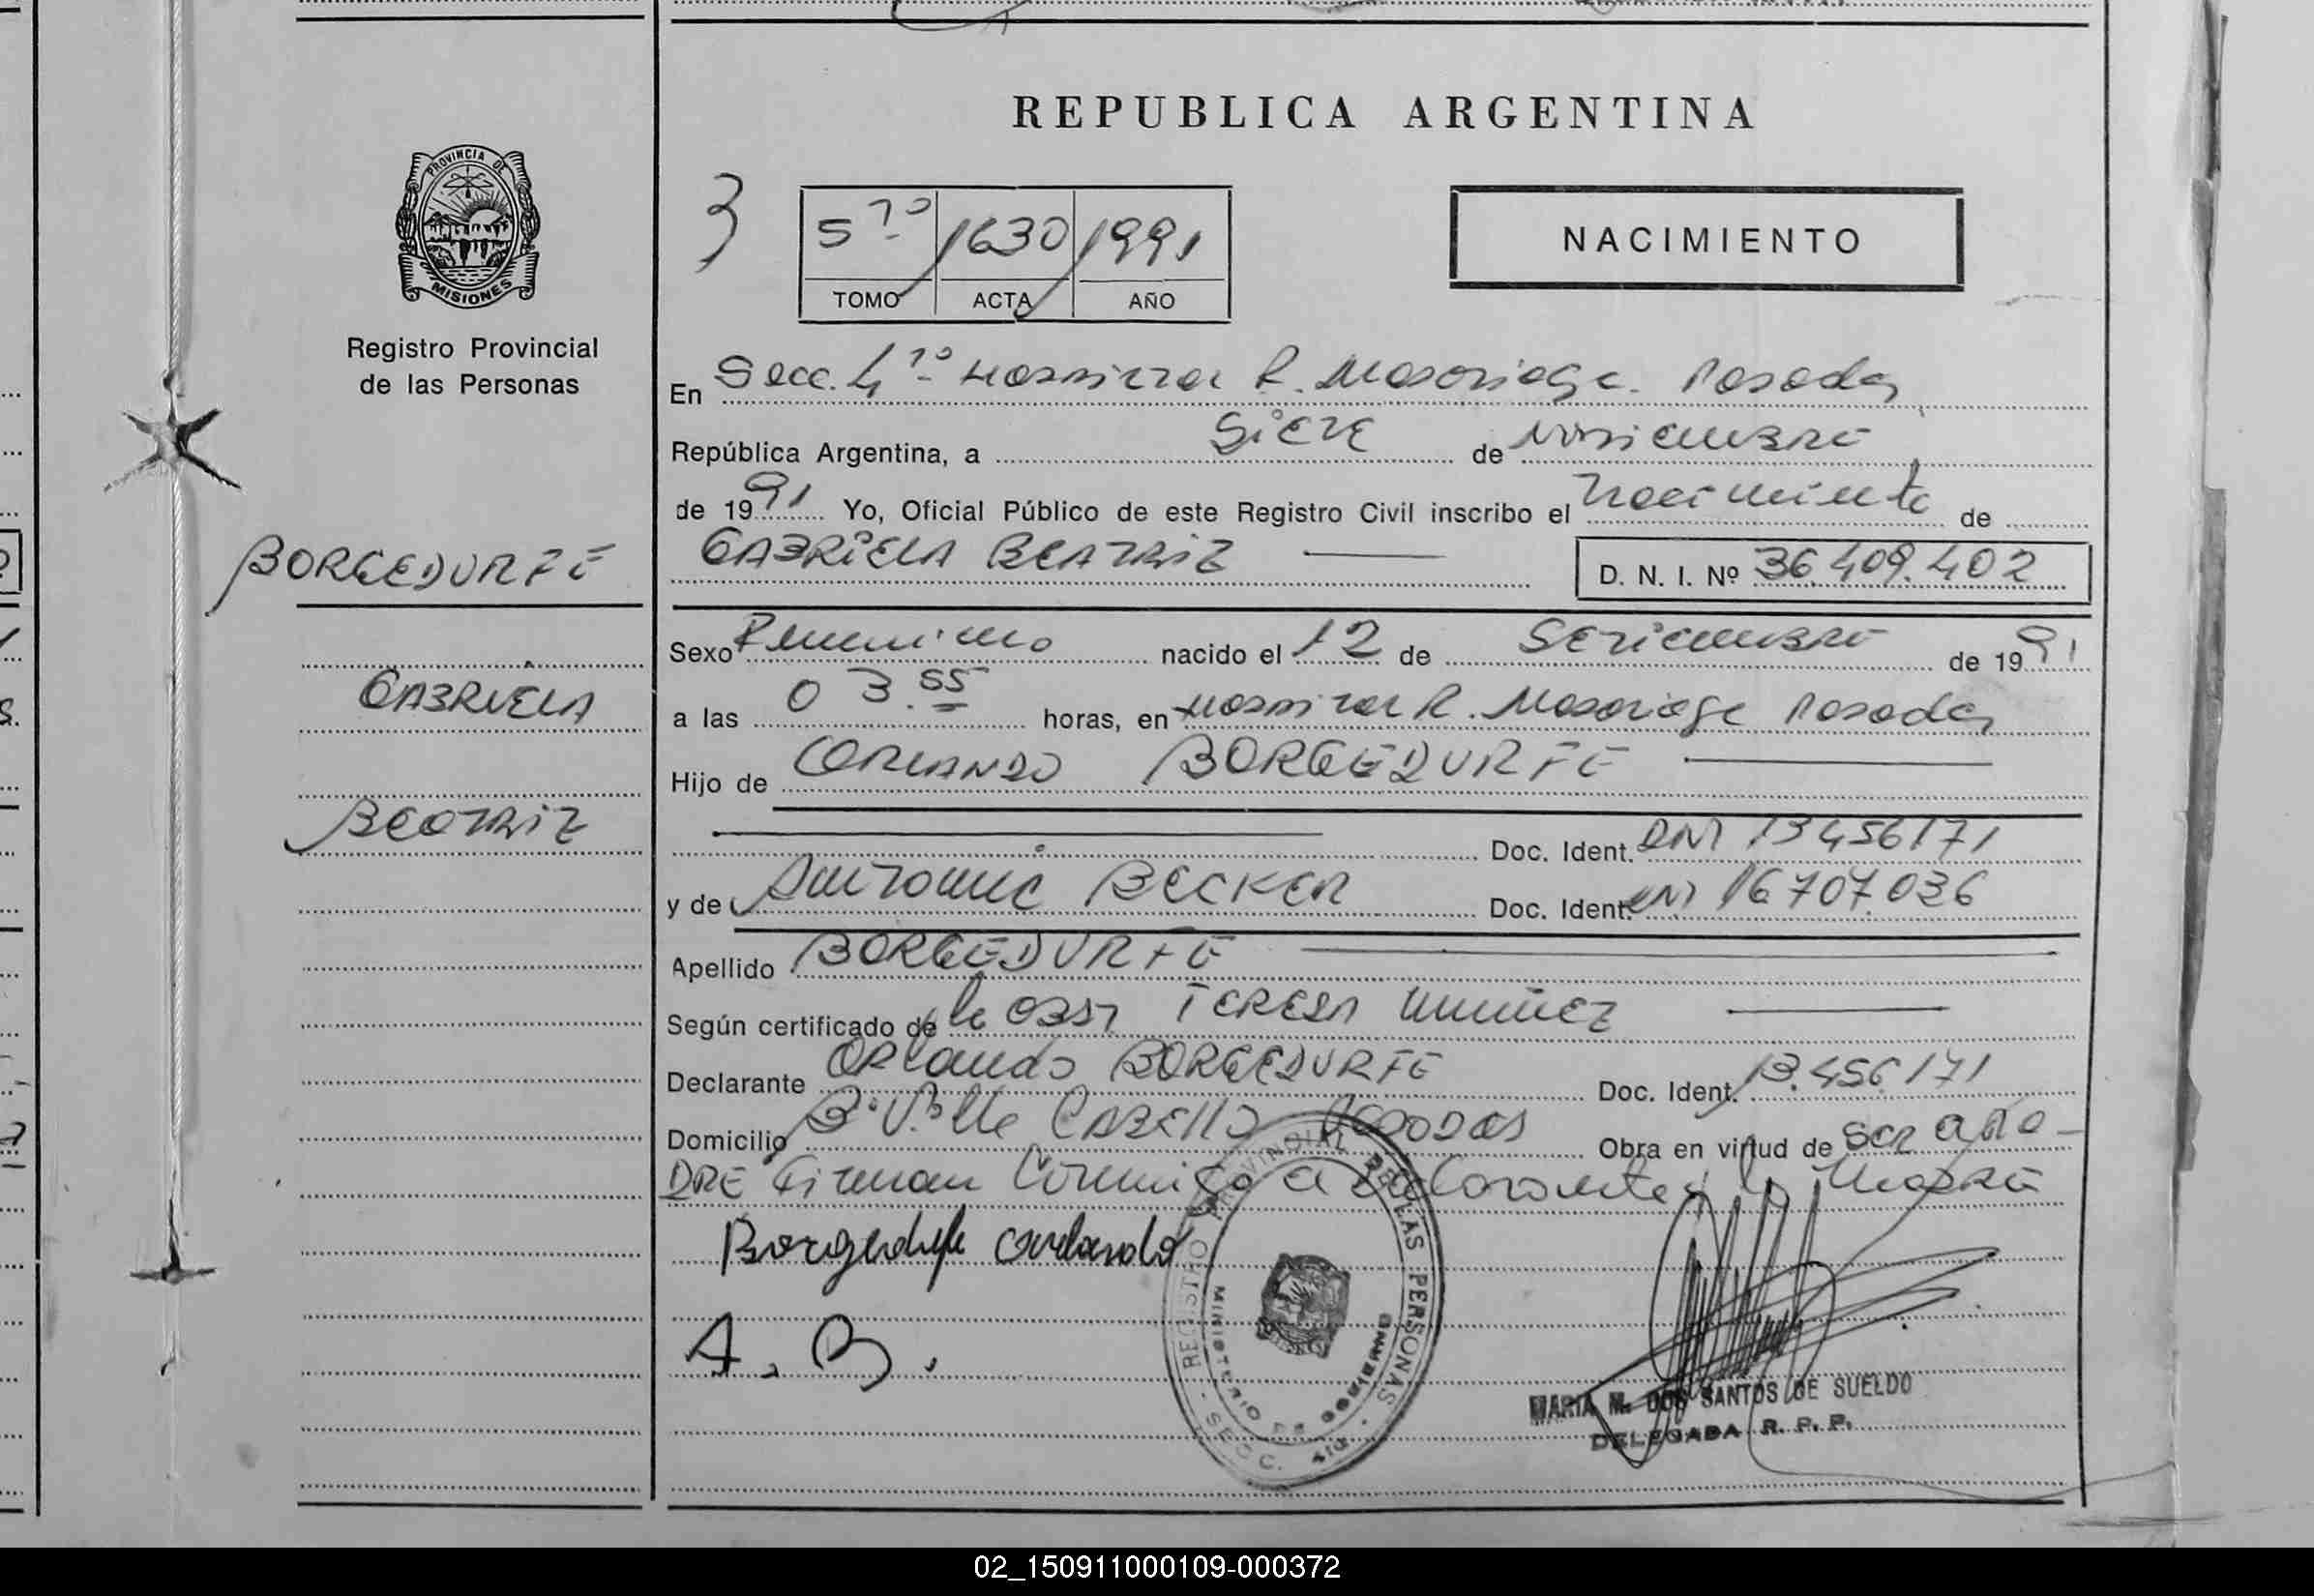 REPUBLICA ARGENTINA
PROVINCIA DE
MISIONES
Registro Provincial
de las Personas
3
5to 1630 1991
TOMO ACTA AÑO
NACIMIENTO
En Secc. 4ta Hospital R. Madariaga. Posadas
República Argentina, a Siete de Noviembre
de 1991 Yo, Oficial Público de este Registro Civil inscribo el Nacimiento de
GABRIELA BEATRIZ
D. N. I. Nº 36.409.402
BORGEDURFE
GABRIELA
BEATRIZ
Sexo Femenino nacido el 12 de Setiembre de 1991
a las 03.55 horas, en Hospital R. Madariaga Posadas
Hijo de ORLANDO BORGEDURFE
Doc. Ident. DNI 13456171
y de BECKER Doc. Ident. DNI 16707.036
Apellido BORGEDURFE
Según certificado de la Obst TERESA
Declarante Orlando BORGEDURFE Doc. Ident. 13.456.171
Domicilio B. Villa CABELLO Posadas Obra en virtud de ser el Pa-
DRE Firman Conmigo el Declarante y la Madre
Borgedufe orlando
A. B.
REGISTRO PROVINCIAL DE LAS PERSONAS
MINISTERIO DE GOBIERNO
SECC. 4ta.
MARIA M. DOS SANTOS DE SUELDO
DELEGADA R. P. P.
02_150911000109-000372